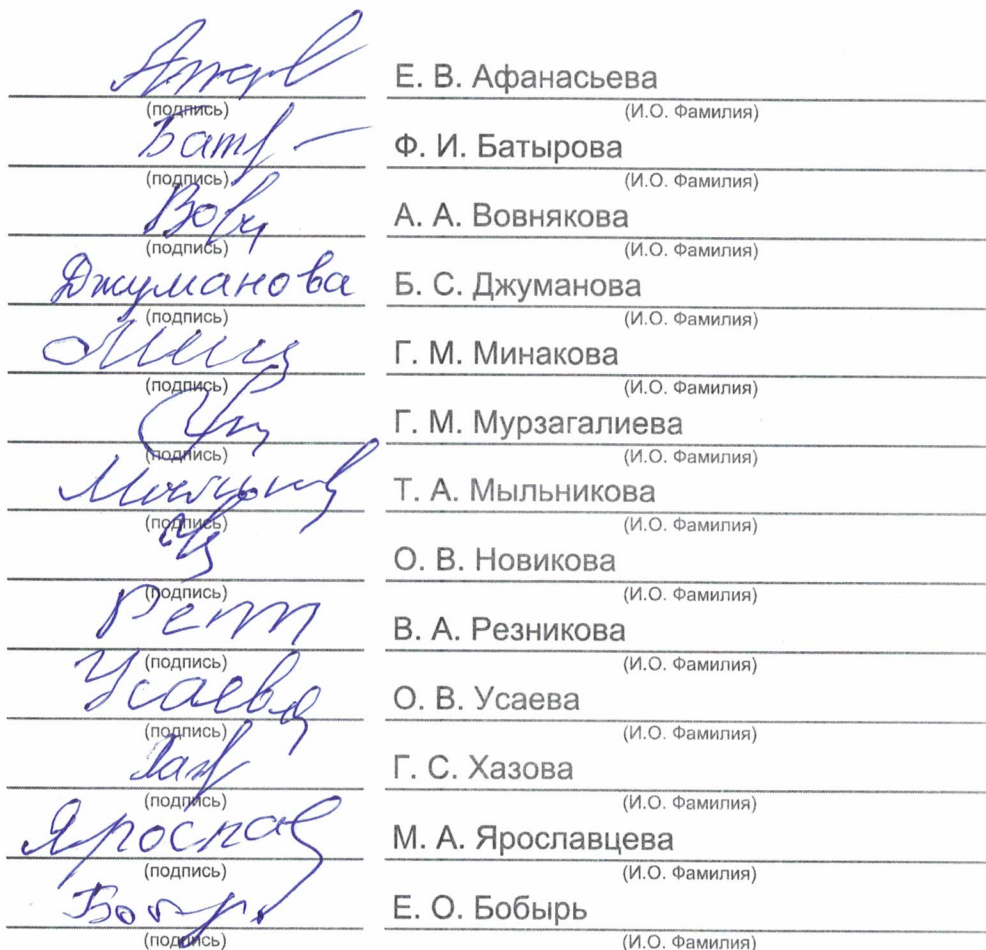 Е. В. Афанасьева
(подпись) (И.О. Фамилия)
Ф. И. Батырова
(подпись) (И.О. Фамилия)
А. А. Вовнякова
(подпись) (И.О. Фамилия)
Джуманова Б. С. Джуманова
(подпись) (И.О. Фамилия)
Г. М. Минакова
(подпись) (И.О. Фамилия)
Г. М. Мурзагалиева
(подпись) (И.О. Фамилия)
Т. А. Мыльникова
(подпись) (И.О. Фамилия)
О. В. Новикова
(подпись) (И.О. Фамилия)
В. А. Резникова
(подпись) (И.О. Фамилия)
Усаева О. В. Усаева
(подпись) (И.О. Фамилия)
Г. С. Хазова
(подпись) (И.О. Фамилия)
Ярослав М. А. Ярославцева
(подпись) (И.О. Фамилия)
Е. О. Бобырь
(подпись) (И.О. Фамилия)